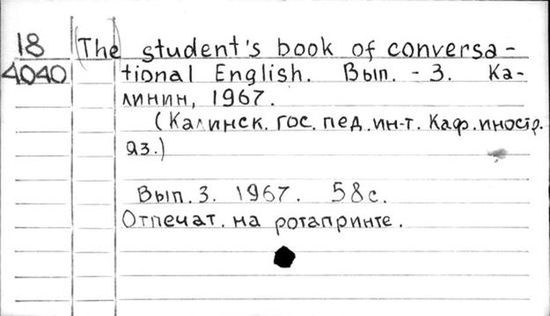 18 (The student's book of conversa-
4040 tional English. Вып. - 3. Ка-
линин, 1967.
(Калинск. гос. пед. ин-т. Каф. иностр.
яз.)
Вып. 3. 1967. 58с.
Отпечат. на ротапринте.